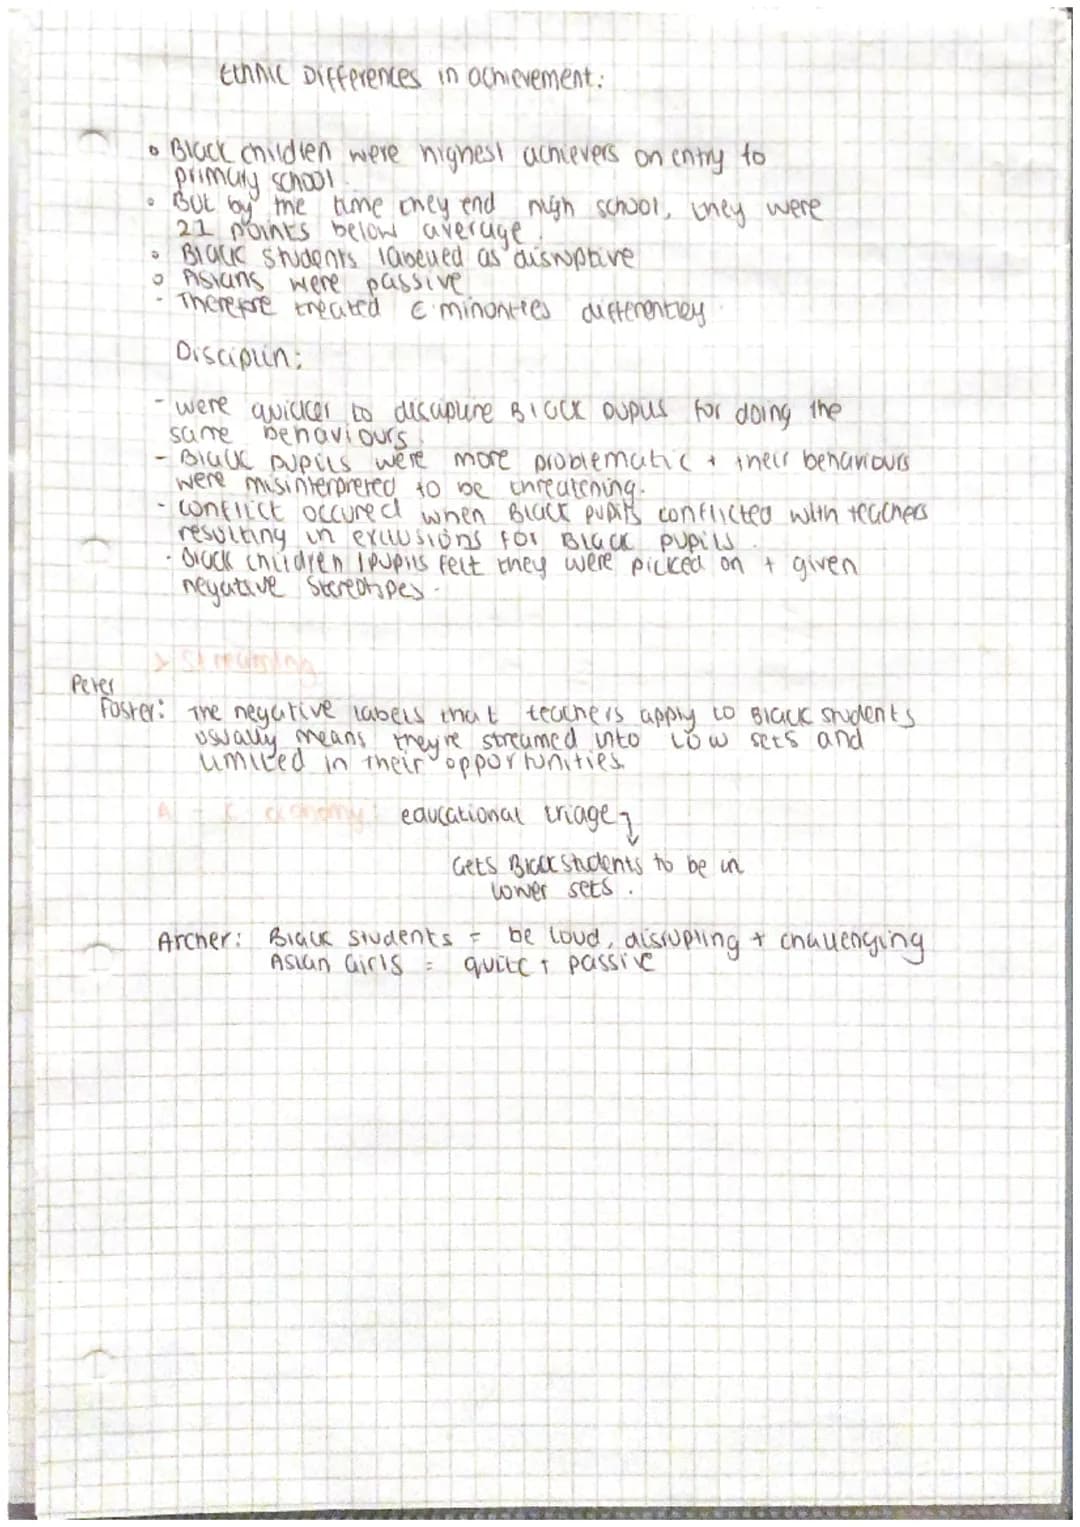 Ethnic Differences in achievement:
• Black children were highest achievers on entry to
primary school.
• But by the time they end high school, they were
21 points below average.
• Black students labelled as disruptive
• Asians were passive
- Therefore treated E minorities differentley.
Disciplin:
- were quicker to discipline Black pupils for doing the
same behaviours.
- Black pupils were more problematic + their behaviours
were misinterpreted to be threatening.
- conflict occured when Black pupils conflicted with teachers
resulting in exclusions for Black pupils.
- black children / pupils felt they were picked on + given
negative stereotipes.
> Streaming
Peter
Foster: The negative labels that teachers apply to Black students
usually means they're streamed into low sets and
limited in their opportunities.
A - C economy: educational triage
Gets Black students to be in
lower sets.
Archer: Black students = be loud, disrupting + challenging
Asian Girls = quite + passive